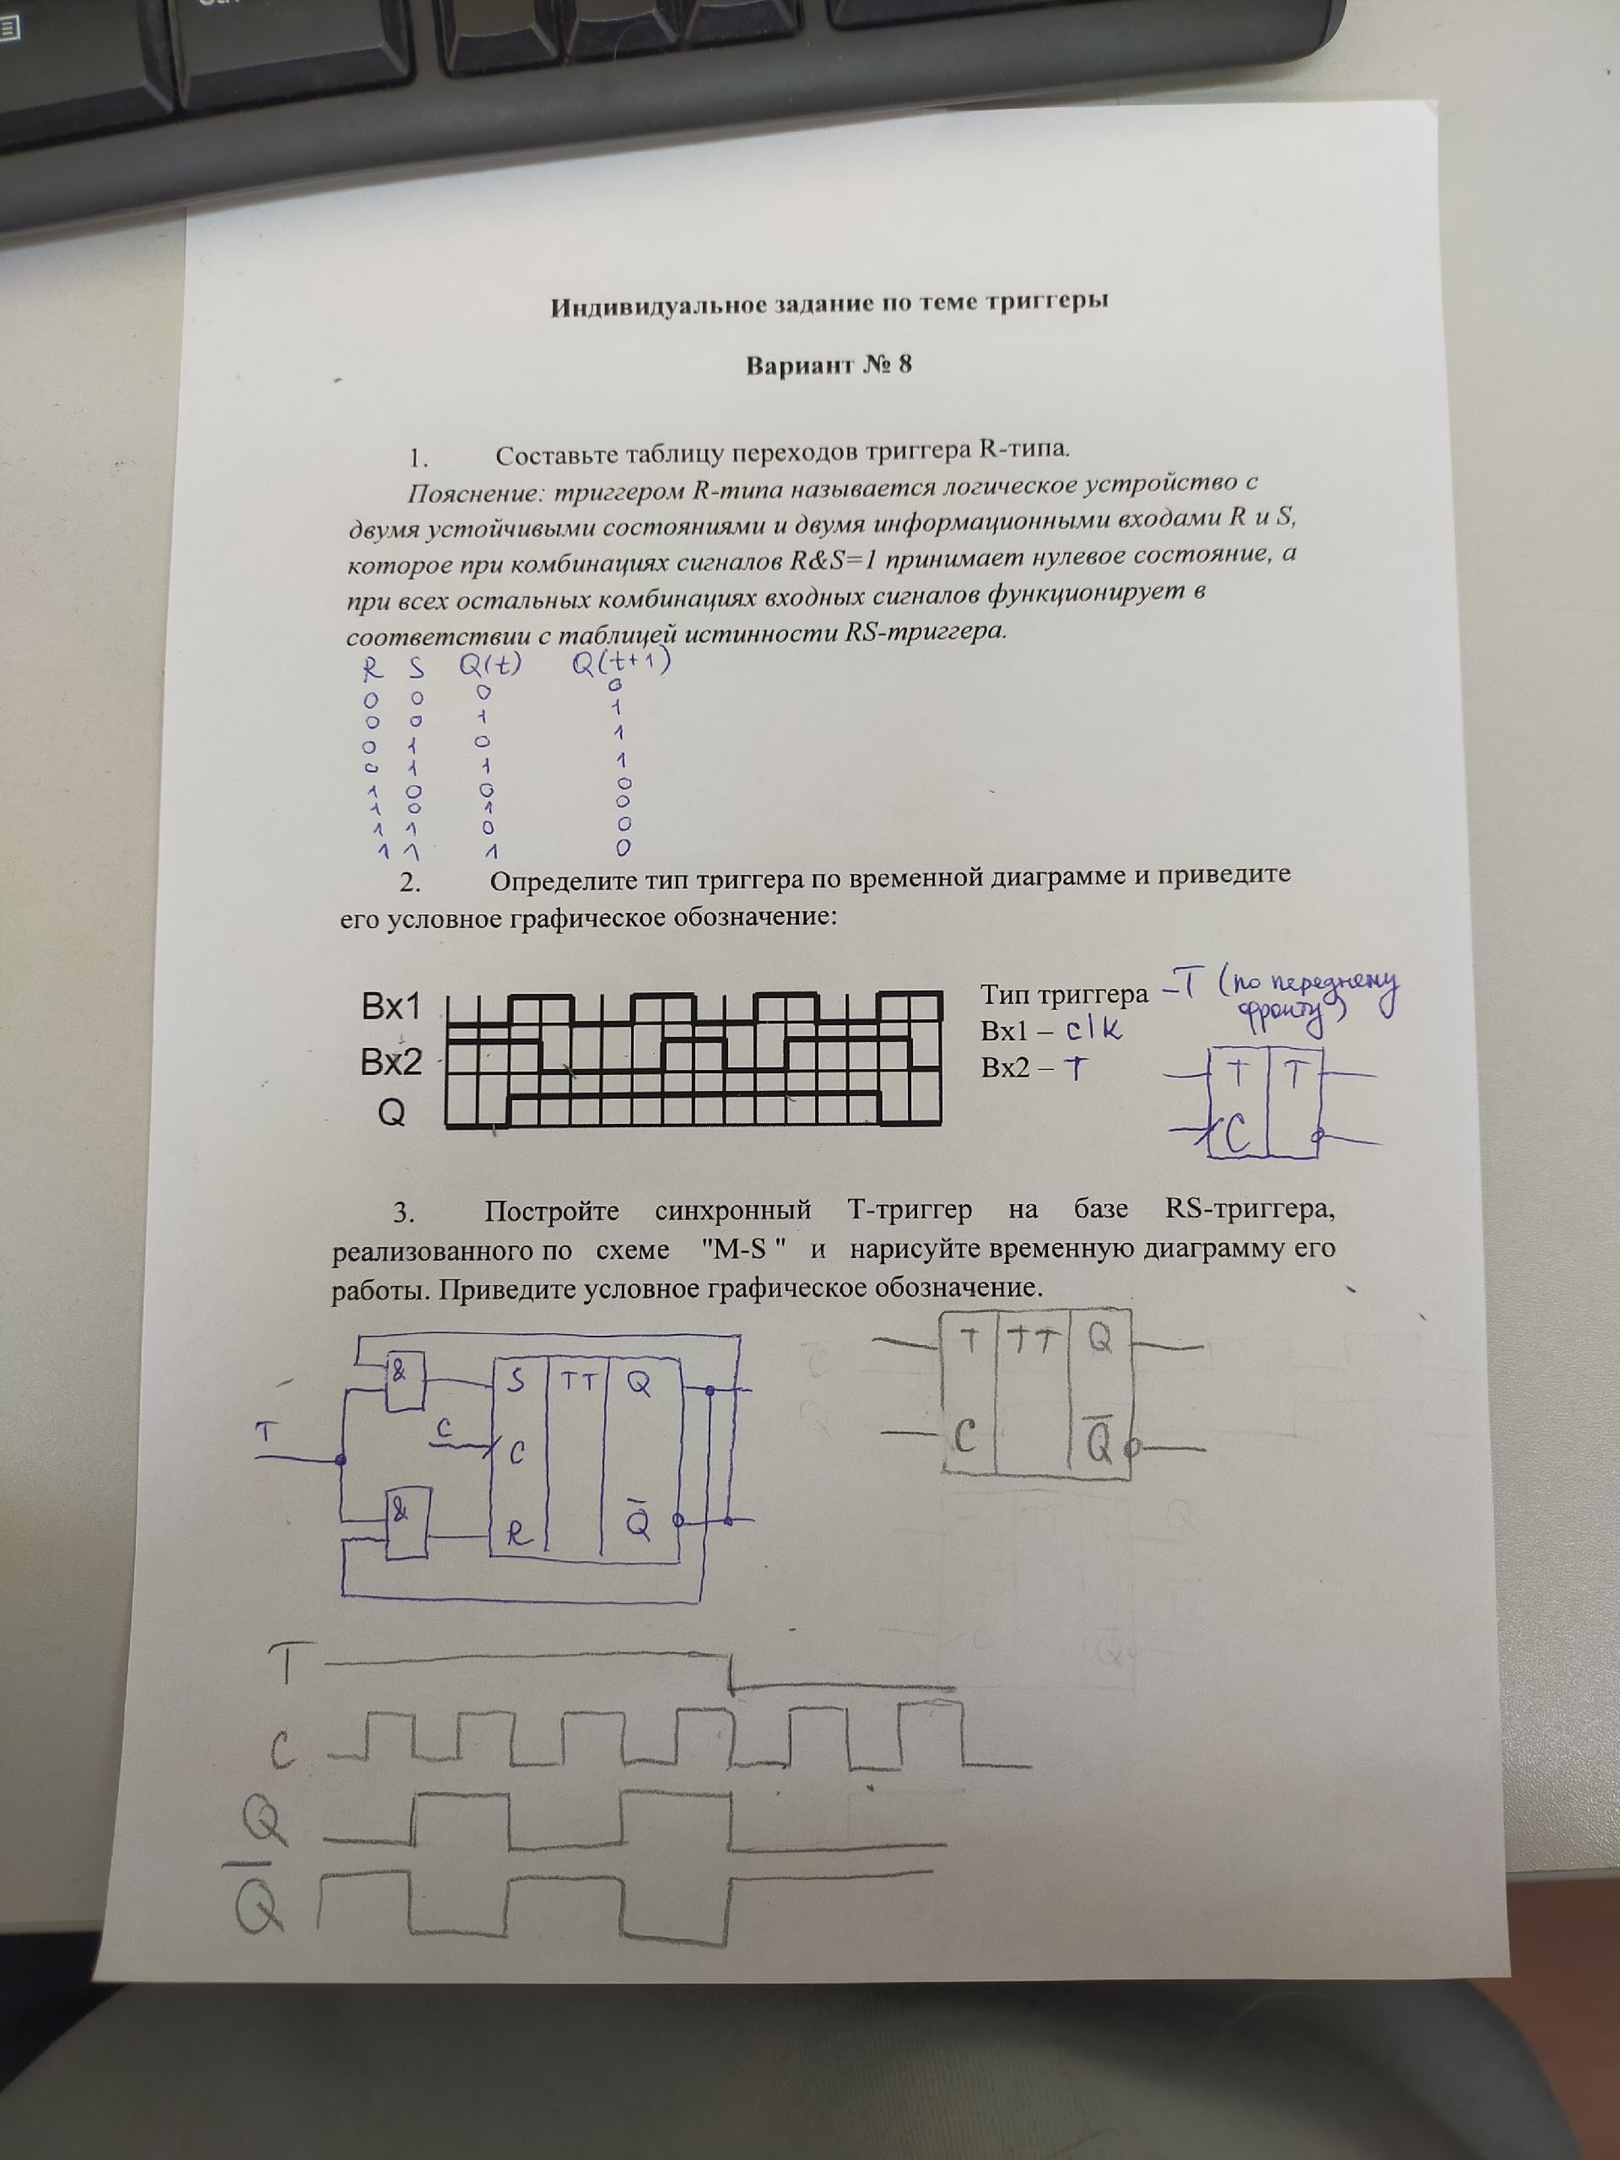 Индивидуальное задание по теме триггеры
Вариант № 8
1. Составьте таблицу переходов триггера R-типа.
Пояснение: триггером R-типа называется логическое устройство с
двумя устойчивыми состояниями и двумя информационными входами R и S,
которое при комбинациях сигналов R&S=1 принимает нулевое состояние, а
при всех остальных комбинациях входных сигналов функционирует в
соответствии с таблицей истинности RS-триггера.
R S Q(t) Q(t+1)
0 0 0 0
0 0 1 1
0 1 0 1
0 1 1 1
1 0 0 0
1 0 1 0
1 1 0 0
1 1 1 0
2. Определите тип триггера по временной диаграмме и приведите
его условное графическое обозначение:
Вх1
Вх2
Q
Тип триггера – T (по переднему
фронту)
Вх1 – clk
Вх2 – T
T T
C
3. Постройте синхронный Т-триггер на базе RS-триггера,
реализованного по схеме "M-S " и нарисуйте временную диаграмму его
работы. Приведите условное графическое обозначение.
T
&
&
C
S TT Q
C
R Q̅
T TT Q
C Q̅
T
C
Q
Q̅